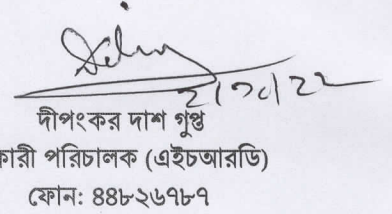 ২/১০/২২
দীপংকর দাশ গুপ্ত
কারী পরিচালক (এইচআরডি)
ফোন: ৪৪৮২৬৭৮৭